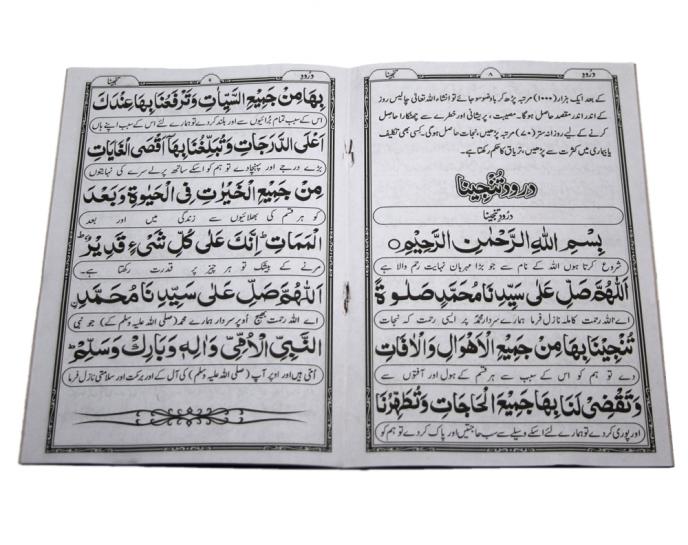 درُود
۸
تنجینا
کے بعد ایک ہزار (۱۰۰۰) مرتبہ پڑھ کر باوضو سو جائے تو انشاء اللہ تعالیٰ چالیس روز
کے اندر اندر مقصد حاصل ہوگا۔ مصیبت، پریشانی اور خطرے سے چھٹکارا حاصل
کرنے کے لیے روزانہ ستر (۷۰) مرتبہ پڑھیں، نجات حاصل ہوگی۔ کسی بھی تکلیف
یا بیماری میں کثرت سے پڑھیں، تریاق کا حکم رکھتا ہے۔
درودِ تُنَجِّینا
درُودِ تنجینا
بِسْمِ اللهِ الرَّحْمٰنِ الرَّحِيْمِ
شروع کرتا ہوں اللہ کے نام سے جو بڑا مہربان نہایت رحم والا ہے
اَللّٰهُمَّ صَلِّ عَلٰى سَيِّدِنَا مُحَمَّدٍ صَلٰوةً
اے اللہ رحمت کاملہ نازل فرما ہمارے سردار محمدؐ پر ایسی رحمت کہ نجات
تُنَجِّيْنَا بِهَا مِنْ جَمِيْعِ الْاَهْوَالِ وَالْاٰفَاتِ
دے تو ہم کو اس کے سبب سے ہر قسم کے ہول اور آفتوں سے
وَتَقْضِىْ لَنَا بِهَا جَمِيْعَ الْحَاجَاتِ وَتُطَهِّرُنَا
اور پوری کر دے تو ہمارے لئے اسکے وسیلے سے سب حاجتیں اور پاک کر دے تو ہم کو
درُود
۹
تنجینا
بِهَا مِنْ جَمِيْعِ السَّيِّاٰتِ وَتَرْفَعُنَا بِهَا عِنْدَكَ
اس کے سبب تمام برائیوں سے اور بلند کر دے تو ہمارے لئے اس کے سبب اپنے ہاں
اَعْلَى الدَّرَجَاتِ وَتُبَلِّغُنَا بِهَا اَقْصَى الْغَايَاتِ
بڑے درجے اور پہنچا دے تو ہم کو اسکے ساتھ پرلے سرے کی نہایتوں
مِنْ جَمِيْعِ الْخَيْرَاتِ فِى الْحَيٰوةِ وَبَعْدَ
کو ہر قسم کی بھلائیوں سے زندگی میں اور بعد
الْمَمَاتِ اِنَّكَ عَلٰى كُلِّ شَىْءٍ قَدِيْرٌ
مرنے کے بیشک تو ہر چیز پر قدرت رکھتا ہے۔
اَللّٰهُمَّ صَلِّ عَلٰى سَيِّدِنَا مُحَمَّدِ
اے اللہ رحمت بھیج اُوپر سردار ہمارے محمد (صلی اللہ علیہ وسلم کے) جو نبی
النَّبِىِّ الْاُمِّىِّ وَاٰلِهٖ وَبَارِكْ وَسَلِّمْ
اُمّی ہیں اور اوپر آپ (صلی اللہ علیہ وسلم) کی آل کے اور برکت اور سلامتی نازل فرما